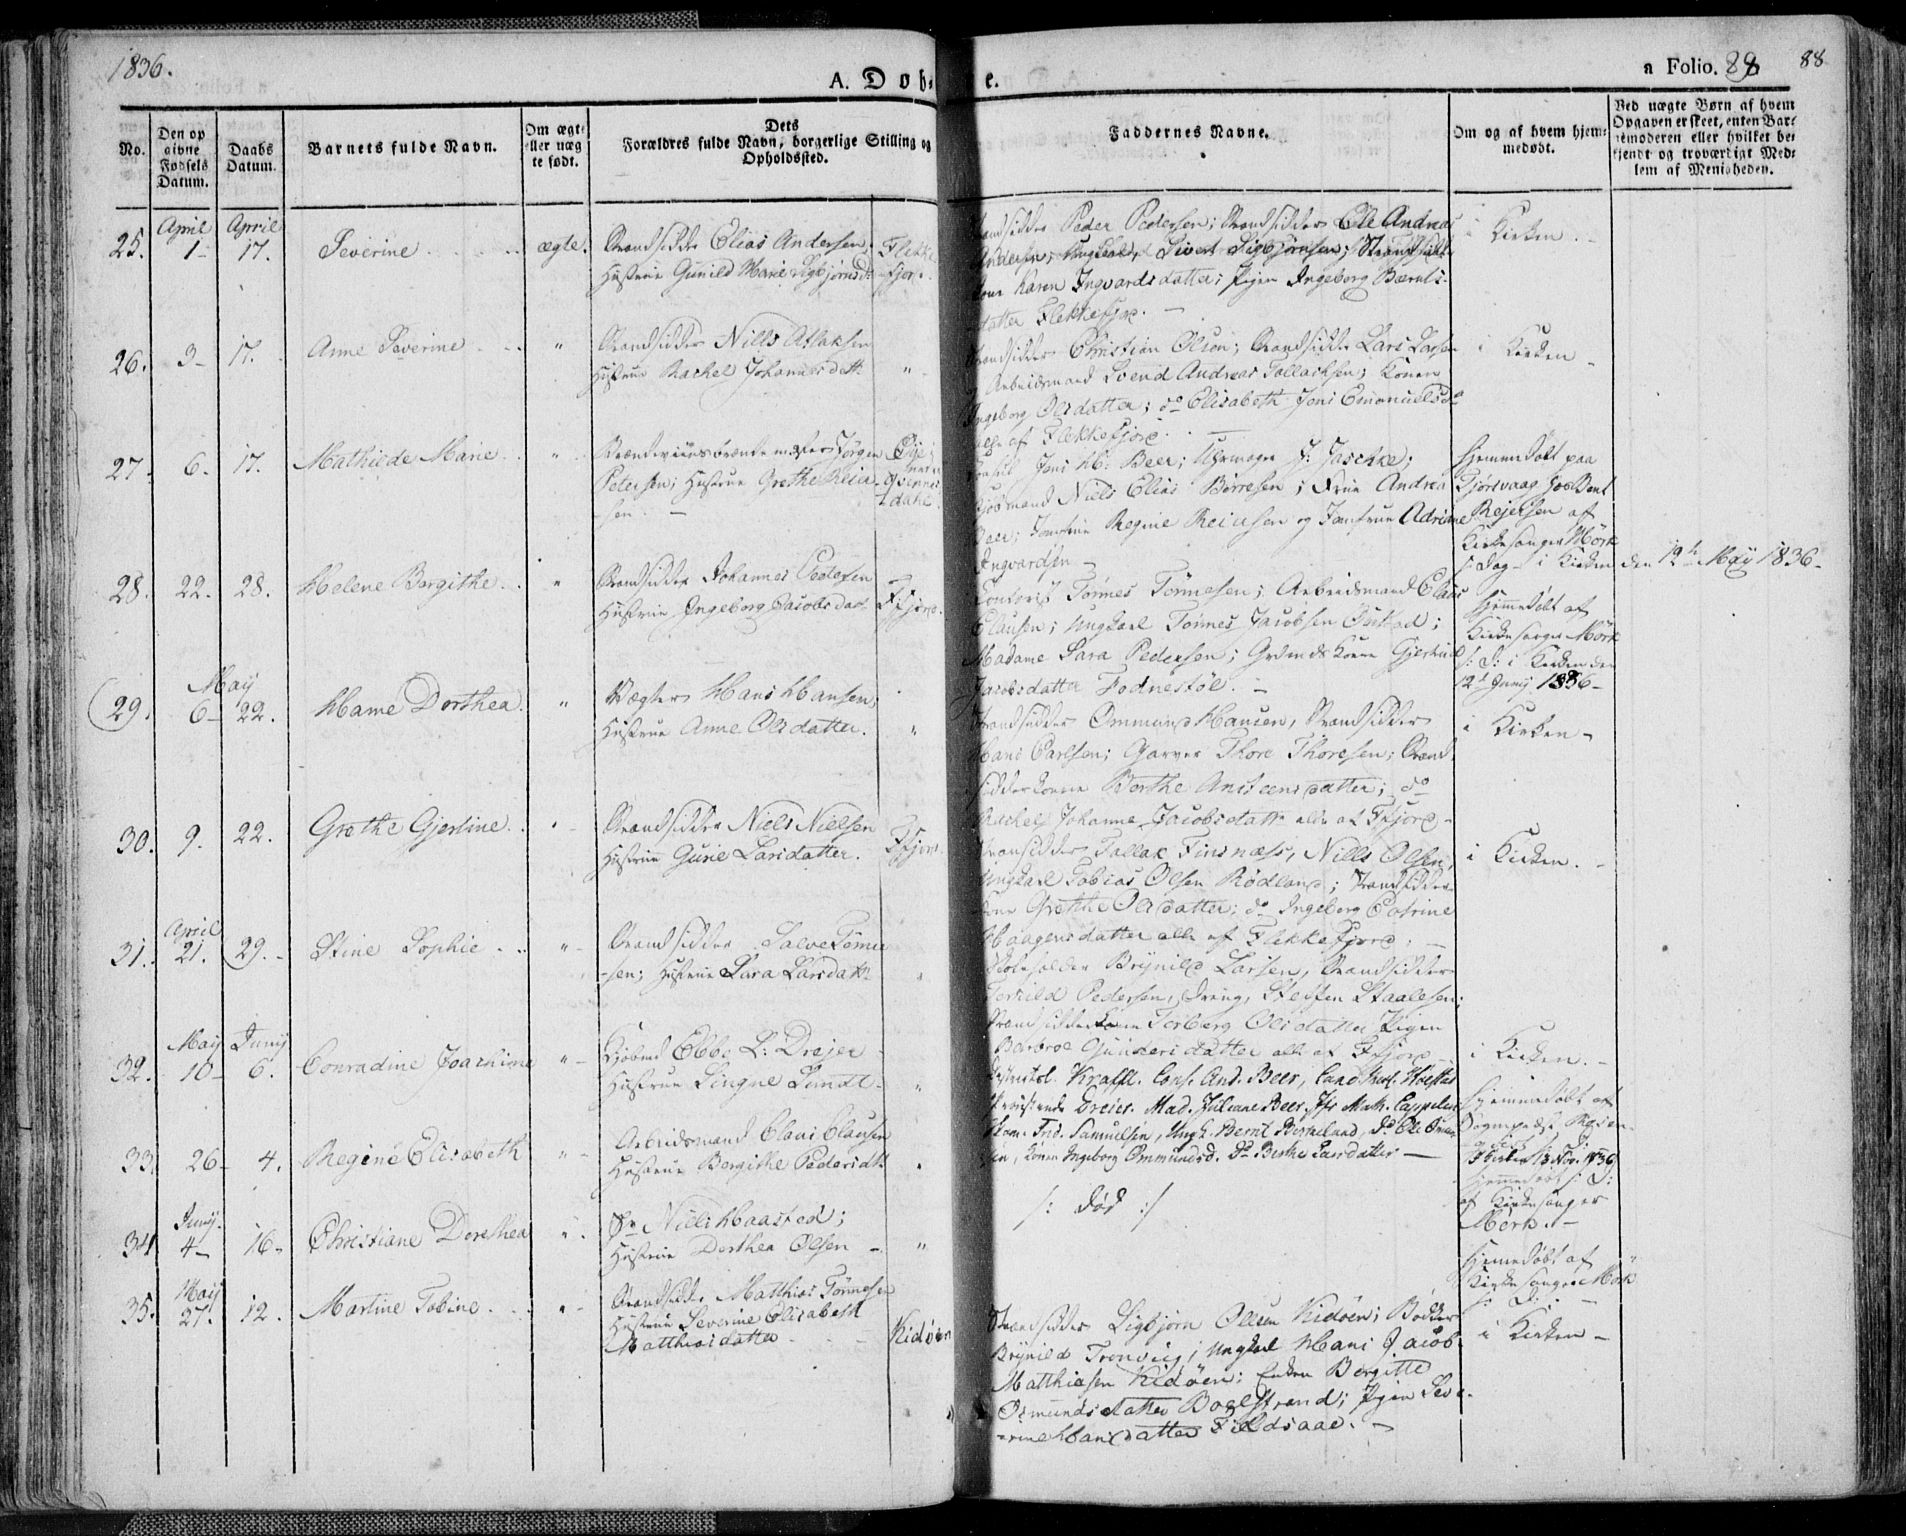 1836.
A. Døb
e.
a Folio. 88
88
No.
Den op
givne
Fødsels
Datum.
Daabs
Datum.
Barnets fulde Navn.
Om ægte
eller uæg
te født.
Dets
Forældres fulde Navn, borgerlige Stilling og
Opholdssted.
Faddernes Navne.
Om og af hvem hjem-
medøbt.
Ved uægte Børn af hvem
Opgaven er skeet, enten Bar-
nemoderen eller hvilket be-
kjendt og troværdigt Med-
lem af Menigheden.
April April
25. 1- 17. Severine ægte.
Strandsidder Elias Andersen
Hustrue Gunild Marie Sigbjørnsd.
Flekke
fjord.
Strandsidder Peder Pedersen; Strandsidder Ole Andreas
Andersen, Ungkarl Sivert Sigbjørnsen; Strandsidder
kone Karen Ingvardsdatter; Pigen Ingeborg Bærnts-
datter Flekkefjord. -
i Kirken. -
26. 3- 17. Anne Severine "
Strandsidder Nills Atlaksen
Hustrue Rachel Johannesdatt. "
Strandsidder Christian Olsen; Strandsidder Lars Larsen
Arbeidsmand Svend Andreas Tallachsen; Konen
Ingeborg Olsdatter; do Elisabeth Jens Emanuelsd.
alle af Flekkefjord.
i Kirken -
27. 6. 17. Mathilde Marie "
Brændeviinsbrændemester Jørgen
Petersen; Hustrue Grethe
sen. -
dahl
Jens H. Beer; Uhrmager J. Jaschke;
Niels Elias Børresen; Frue Andrea
Beer; Jomfrue Regine Reinsen og Jomfrue Adriane
Ingvardsen -
Hjemmedøbt paa
hos Bent
Rejersen af
Kirkesanger Mørk
s: Dag- i Kirken den 12te May 1836-
28. 22. 28. Helene Bergithe "
Strandsidder Johannes Pedersen
Hustrue Ingeborg Jacobsdat.
Ffjord.
Contorist Tønnes Tønnesen; Arbeidsmand Claus
Clausen; Ungkarl Tønnes Jacobsen
Madame Sara Pedersen; Kone Gjertrud
Jacobsdatter Fodnestøl. -
Hjemmedøbt af
Kirkesanger Mørk
s: D: i Kirken den
12te Juny 1836-
May
29. 6- 22. Hanne Dorthea. "
Vægter Hans Hansen,
Hustrue Anne Olsdatter. "
Strandsidder Ommund Hansen, Strandsidder
Hans Carlsen; Garver Thore Thoresen; Strand
sidderkonen Berthe Ansteensdatter; do
Rachel Johanne Jacobsdatt. alle af Ffjord -
i Kirken -
30. 9. 22. Grethe Gjertine.
Strandsidder Niels Nielsen
Hustrue Gurie Larsdatter. Ffjord.
Strandsidder Tallak Finsnæss, Nills Olsen,
Ungkarl Tobias Olsen Rødland; Strandsidder-
kone Grethe Olsdatter; do Ingeborg Catrine
Haagensdatter alle af Flekkefjord; -
i Kirken. -
April
31. 21. 29. - Stine Sophie "
Strandsidder Salve Tønne
-sen; Hustrue Sara Larsdatt. "
Skoleholder Brynild Larsen, Strandsidder
Terkild Pedersen, Dreng, Steffen Staalesen;
Strandsidderkone Torberg Olsdatter Pigen
Barbroe Gundersdatter alle af Ffjord -
i Kirken. -
May Juny
32. 10- 6. Conradine Joachime "
Kjøbmd Ebbe L: Drejer
Hustrue Singne Lundt. "
Krafft. Cons. And. Beer, Cand. Holst
Dreier. Mad. Juliane Beer, Jfr Math. Cappelen
Hjemmedøbt af
33. 26- 4. Regine Elisabeth "
Arbeidsmand Claus Clausen
Hustrue Bergithe Pedersdtt. "
Samuelsen, Ungk. Bernt Birkeland, Do Ole
Konen Ingeborg Ommundsd. Do Birthe Larsdatter -
13 Nov. 1836
Hjemmedøbt s: D:
af Kirkesanger
Mørk. -
Juny.
34 4- 16- Christiane Dorethea "
Hr Niels Haasted;
Hustrue Dorthea Olsen - "
/: død :/
Hjemmedøbt af
Kirkesanger Mørk
s: D: -
May
35. 27. 12. Martine Tobine
Strandsidder Matthias Tønnesen
Hustrue Severine Elisabeth
Matthiasdatter
Kidøen
Strandsidder Sigbjørn Ollsen Kidøen; Bødker
Brynild Tronvig; Ungkarl Hans Jacob
Matthiesen Kidøen; Enken Bergitte
Osmundsdatter Boelstrand; Pigen Seve-
rine Hansdatter Fildsaae. -
i Kirken -